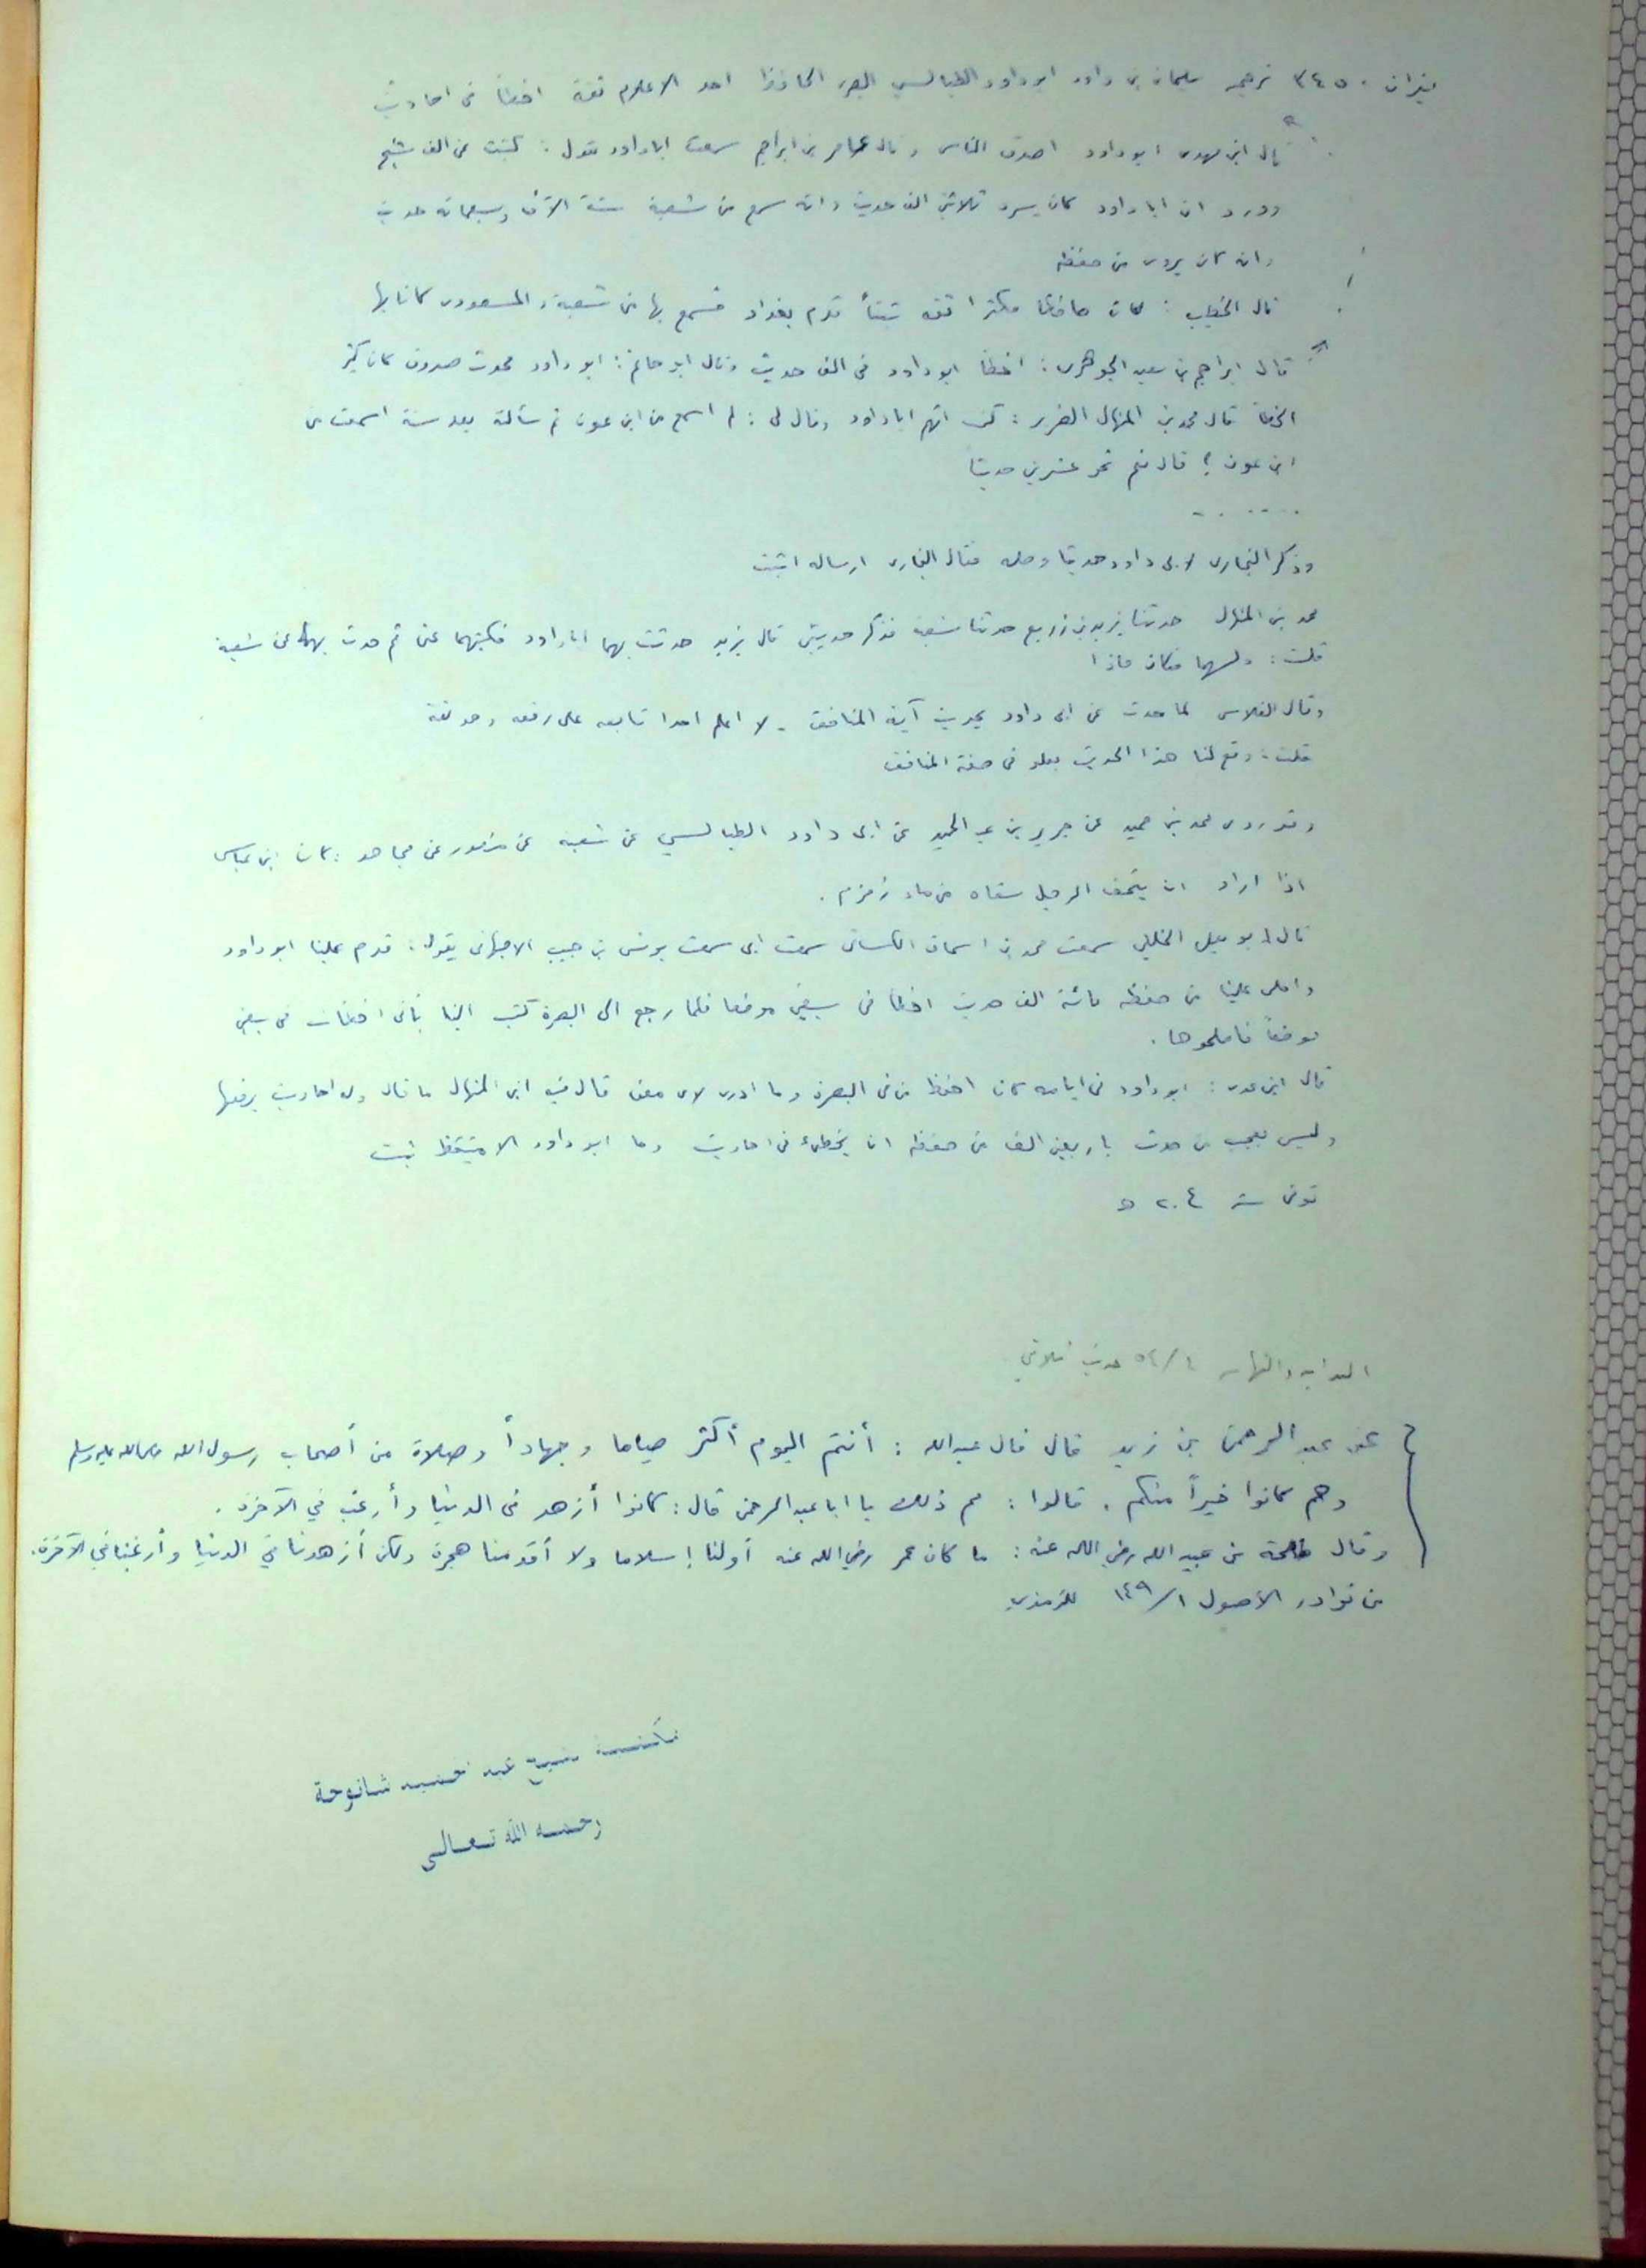 ميزان ٣٤٥٠ ترجمه سليمان بن داود ابو داود الطيالسي البصرى الحافظ احد الاعلام ثقة اخطأ فى احاديث
قال ابن مهدى ابو داود اصدق الناس وقال عامر بن ابراهيم سمعت ابا داود يقول : كتبت عن الف شيخ
وورد ان ابا داود كان يسرد ثلاثين الف حديث وانه سمع من شعبة ستة الآف وسبعمائة حديث
وانه كان يروى من حفظه
قال الخطيب : كان حافظا مكثرا ثقه ثبتاً قدم بغداد فسمع بها من شعبة والمسعودى كانا بها
قال ابراهيم بن سعيد الجوهرى : اخطأ ابو داود فى الف حديث وقال ابو حاتم : ابو داود محدث صدوق كان كثير
الخطأ قال محمد بن المنهال الضرير : كنت اتهم ابا داود وقال لى : لم اسمع من ابن عون ثم سألته بعد سنة اسمعت من
ابن عون ؟ قال نعم نحو عشرين حديثا
.......
وذكر البخارى لابى داود حديثا وصله فقال البخارى ارساله اثبت
محمد بن المنهال حدثنا يزيد بن زريع حدثنا شعبة فذكر حديثين قال يزيد حدثت بهما ابا داود فكتبهما عنى ثم حدث بهما عن شعبة
قلت : دلسهما فكان ماذا
وقال الفلاس لما حدث عن ابى داود بحديث آية المنافق - لا اعلم احدا تابعه على رفعه وهو ثقة
قلت : وقع لنا هذا الحديث بعلو فى صفة المنافق
وقد روى محمد بن حميد عن جرير بن عبد الحميد عن ابى داود الطيالسي عن شعبه عن منصور عن مجاهد : كان ابن عباس
اذا اراد ان يتحف الرجل سقاه من ماء زمزم .
قال ابو يعلى الخليلى سمعت محمد بن اسحاق الكسائى سمعت ابى سمعت يونس بن حبيب الاصبهانى يقول : قدم علينا ابو داود
واملى علينا من حفظه مائة الف حديث اخطأ فى سبعين موضعا فلما رجع الى البصرة كتب الينا بأنى اخطأت فى سبعين
موضعاً فاصلحوها .
قال ابن عدى : ابو داود فى ايامه كان احفظ من فى البصرة وما ادرى لاى معنى قال فيه ابن المنهال ما قال وله احاديث يرفعها
وليس بعجب من حدث باربعين الف من حفظه ان يخطىء فى احاديث وما ابو داود الا متيقظ ثبت
توفى سنة ٢٠٤ ه
البداية والنهاية
عن عبد الرحمن بن زيد قال قال عبد الله : أنتم اليوم أكثر صياما وجهاداً وصلاة من أصحاب رسول الله صلى الله عليه وسلم
وهم كانوا خيراً منكم . قالوا : مم ذلك يا ابا عبد الرحمن قال : كانوا أزهد فى الدنيا وأرغب في الآخرة .
وقال طلحة بن عبيد الله رضي الله عنه : ما كان عمر رضي الله عنه أولنا إسلاما ولا أقدمنا هجرة ولكن أزهدنا في الدنيا وأرغبنا في الآخرة .
من نوادر الأصول ١٤٩/١ للترمذي
شانوحة
رحمه الله تعالى